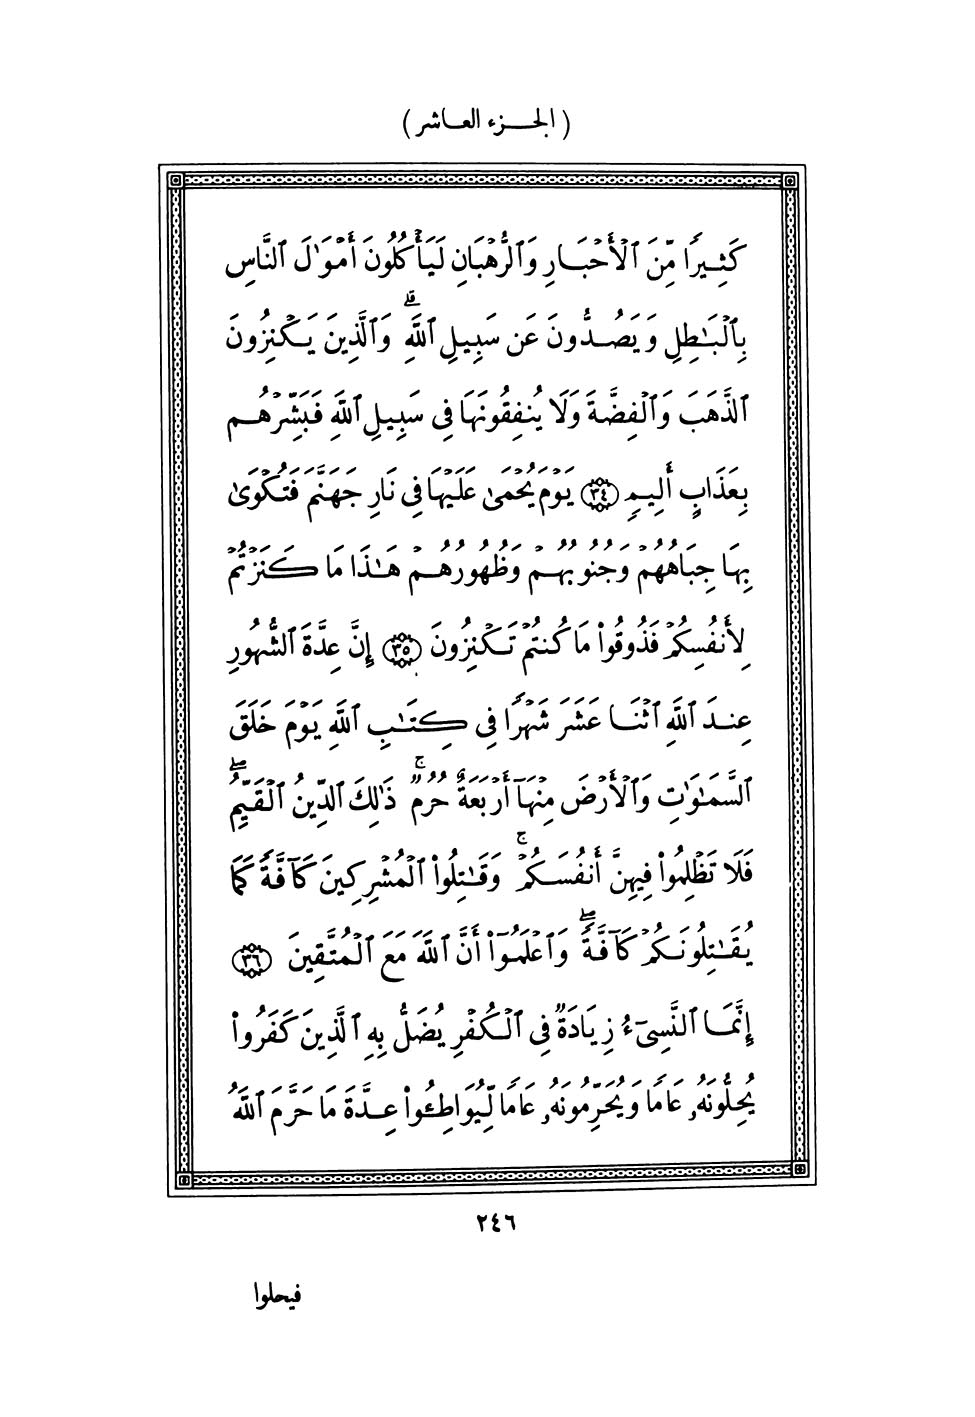 (الجـزء العـاشر)
كَثِيرًا مِّنَ ٱلْأَحْبَارِ وَٱلرُّهْبَانِ لَيَأْكُلُونَ أَمْوَٰلَ ٱلنَّاسِ
بِٱلْبَٰطِلِ وَيَصُدُّونَ عَن سَبِيلِ ٱللَّهِۗ وَٱلَّذِينَ يَكْنِزُونَ
ٱلذَّهَبَ وَٱلْفِضَّةَ وَلَا يُنفِقُونَهَا فِى سَبِيلِ ٱللَّهِ فَبَشِّرْهُم
بِعَذَابٍ أَلِيمٍ ٣٤ يَوْمَ يُحْمَىٰ عَلَيْهَا فِى نَارِ جَهَنَّمَ فَتُكْوَىٰ
بِهَا جِبَاهُهُمْ وَجُنُوبُهُمْ وَظُهُورُهُمْ هَٰذَا مَا كَنَزْتُمْ
لِأَنفُسِكُمْ فَذُوقُوا۟ مَا كُنتُمْ تَكْنِزُونَ ٣٥ إِنَّ عِدَّةَ ٱلشُّهُورِ
عِندَ ٱللَّهِ ٱثْنَا عَشَرَ شَهْرًا فِى كِتَٰبِ ٱللَّهِ يَوْمَ خَلَقَ
ٱلسَّمَٰوَٰتِ وَٱلْأَرْضَ مِنْهَآ أَرْبَعَةٌ حُرُمٌۚ ذَٰلِكَ ٱلدِّينُ ٱلْقَيِّمُۖ
فَلَا تَظْلِمُوا۟ فِيهِنَّ أَنفُسَكُمْۚ وَقَٰتِلُوا۟ ٱلْمُشْرِكِينَ كَآفَّةً كَمَا
يُقَٰتِلُونَكُمْ كَآفَّةًۖ وَٱعْلَمُوٓا۟ أَنَّ ٱللَّهَ مَعَ ٱلْمُتَّقِينَ ٣٦
إِنَّمَا ٱلنَّسِىٓءُ زِيَادَةٌ فِى ٱلْكُفْرِ يُضَلُّ بِهِ ٱلَّذِينَ كَفَرُوا۟
يُحِلُّونَهُۥ عَامًا وَيُحَرِّمُونَهُۥ عَامًا لِّيُوَاطِـُٔوا۟ عِدَّةَ مَا حَرَّمَ ٱللَّهُ
٢٤٦
فيحلوا